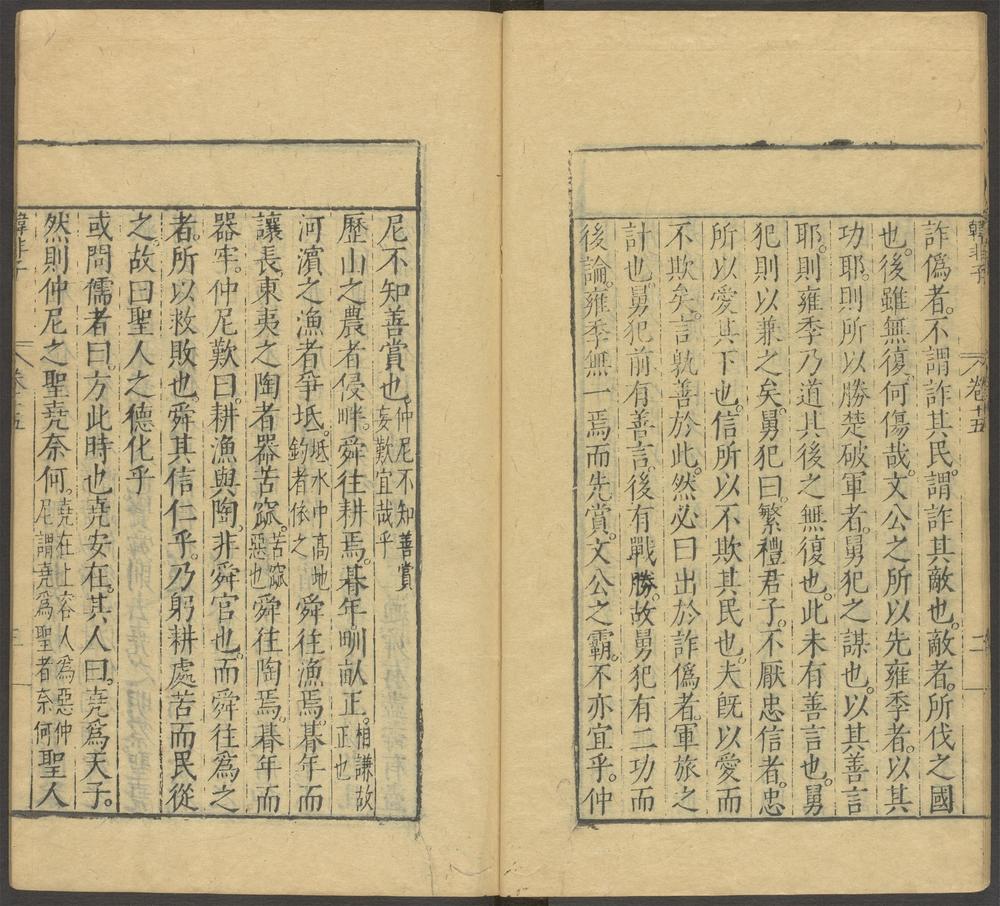 韓非子
卷十五
二
詐偽者。不謂詐其民。謂詐其敵也。敵者。所伐之國
也。後雖無復。何傷哉。文公之所以先雍季者。以其
功耶。則所以勝楚破軍者。舅犯之謀也。以其善言
耶。則雍季乃道其後之無復也。此未有善言也。舅
犯則以兼之矣。舅犯曰。繁禮君子。不厭忠信者。忠
所以愛其下也。信所以不欺其民也。夫旣以愛而
不欺矣。言孰善於此。然必曰出於詐偽者。軍旅之
計也。舅犯前有善言。後有戰勝。故舅犯有二功而
後論。雍季無一焉而先賞。文公之霸。不亦宜乎。仲
尼不知善賞也。仲尼不知善賞妄歎宜哉乎
歷山之農者侵畔。舜往耕焉。朞年甽畝正。相謙故正也
河濵之漁者爭坻。坻水中高地釣者依之舜往漁焉。朞年而
讓長。東夷之陶者器苦窳。苦窳惡也舜往陶焉。朞年而
器牢。仲尼歎曰。耕漁與陶。非舜官也。而舜往爲之
者。所以救敗也。舜其信仁乎。乃躬耕處苦而民從
之。故曰聖人之德化乎
或問儒者曰。方此時也堯安在。其人曰。堯爲天子。
然則仲尼之聖堯奈何。堯在上容人爲惡仲尼謂堯爲聖者奈何聖人
韓非子
卷十五
三